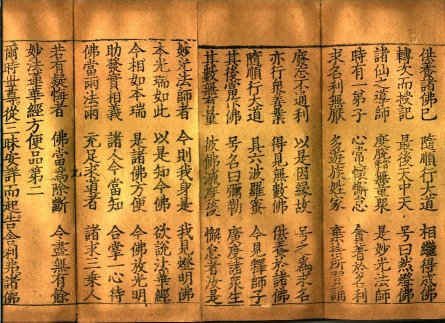 供養諸佛已 隨順行大道 相繼得成佛
轉次而授記 最後天中天 号曰然燈佛
諸仙之導師 度脫無量衆 是妙光法師
時有一弟子 心常懷懈怠 貪著於名利
求名利無厭 多遊族姓家 棄捨所習誦
廢忘不通利 以是因緣故 号之為求名
亦行衆善業 得見無數佛 供養於諸佛
隨順行大道 具六波羅蜜 今見釋師子
其後當作佛 号名曰彌勒 廣度諸衆生
其數無有量 彼佛滅度後 懈怠者汝是
妙光法師者 今則我身是 我見燈明佛
本光瑞如此 以是知今佛 欲說法華經
今相如本瑞 是諸佛方便 今佛放光明
助發實相義 諸人今當知 合掌一心待
佛當雨法雨 充足求道者 諸求三乘人
若有疑悔者 佛當為除斷 令盡無有餘
妙法蓮華經方便品第二
爾時世尊從三昧安詳而起告舍利弗諸佛